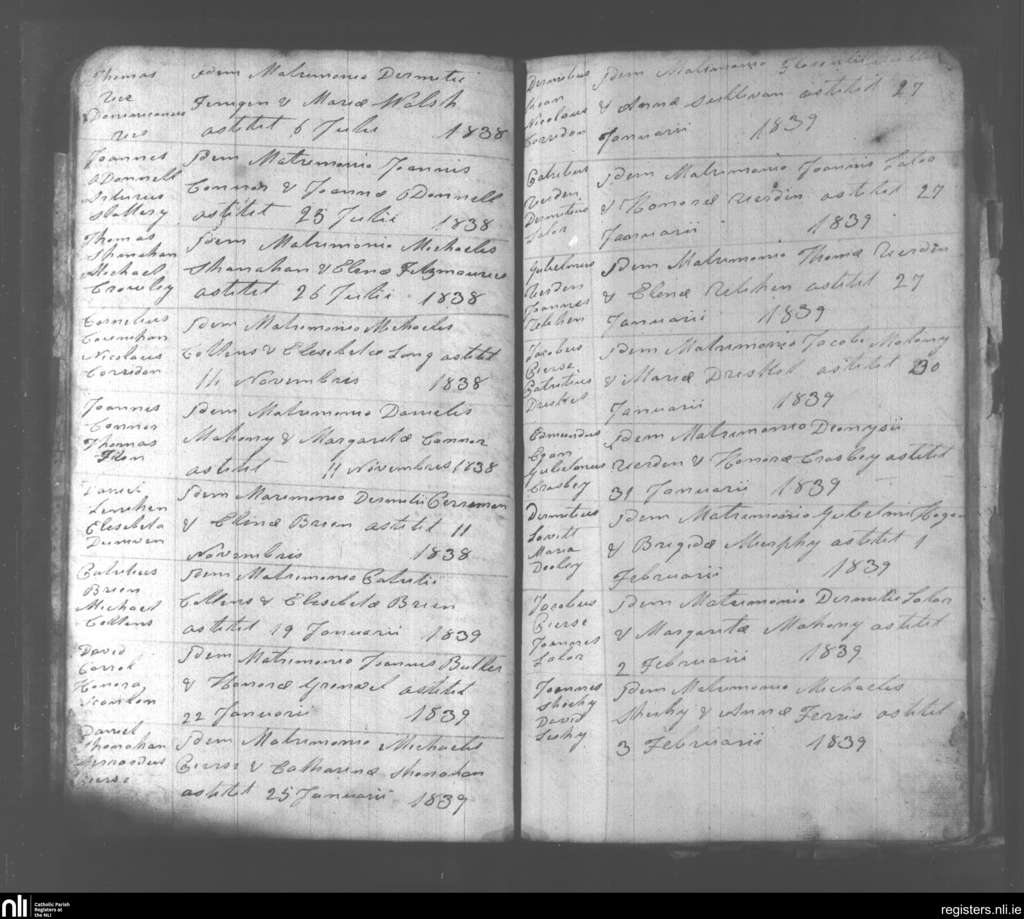 Thomas
Idem Matrimonio Dermitii
Finigen & Mariæ Walsh
astitit 6 Julii 1838
Joannes
O Donnell
Arturus
Slattery
Idem Matrimonio Joannis
Connor & Joannæ O Donnell
astitit 25 Julii 1838
Thomas
Shanahan
Michael
Crowley
Idem Matrimonio Michaelis
Shanahan & Elenæ Fitzmaurice
astitit 26 Julii 1838
Cornelius
Nicolaus
Corridon
Idem Matrimonio Michaelis
Collens & Elesebetæ Long astitit
11 Novembris 1838
Joannes
Connor
Thomas
Idem Matrimonio Danielis
Mahony & Margaritæ Connor
astitit 11 Novembris 1838
Daniel
Elesebeta
Idem Marimonio Dermitii
& Elenæ Brien astitit 11
Novembris 1838
Patritius
Brien
Michael
Collens
Idem Matrimonio Patritii
Collens & Elesebetæ Brien
astitit 19 Januarii 1839
David
Carrol
Honora
Scanlon
Idem Matrimonio Joannis Butler
& Honoræ astitit
22 Januarii 1839
Daniel
Shanahan
Idem Matrimonio Michaelis
Pierse & Catharinæ Shanahan
astitit 25 Januarii 1839
Dermitius
Egan
Nicolaus
Corridon
Idem Matrimonio
& Annæ Sullivan astitit 27
Januarii 1839
Patritius
Rierden
Dermitius
Lalor
Idem Matrimonio Joannis Lalor
& Honoræ Rierden astitit 27
Januarii 1839
Gulielmus
Rierden
Joannes
Relihen
Idem Matrimonio Thomæ Rierden
& Elenæ Relihen astitit 27
Januarii 1839
Jacobus
Pierse
Patritius
Idem Matrimonio Jacobi Mahony
& Mariæ astitit 30
Januarii 1839
Edmundus
Egan
Gulielmus
Crosbey
Idem Matrimonio Dionysii
Rierden & Honoræ Crosbey astitit
31 Januarii 1839
Dermitius
Lovitt
Maria
Dooley
Idem Matrimonio Gulielmi Hogan
& Brigidæ Murphy astitit 1
Februarii 1839
Jacobus
Pierse
Joannes
Lalor
Idem Matrimonio Dermitii Lalor
& Margaritæ Mahony astitit
2 Februarii 1839
Joannes
Shiehy
David
Idem Matrimonio Michaelis
Shiehy & Annæ Ferris astitit
3 Februarii 1839
nli
Catholic Parish
Registers at
the NLI
registers.nli.ie